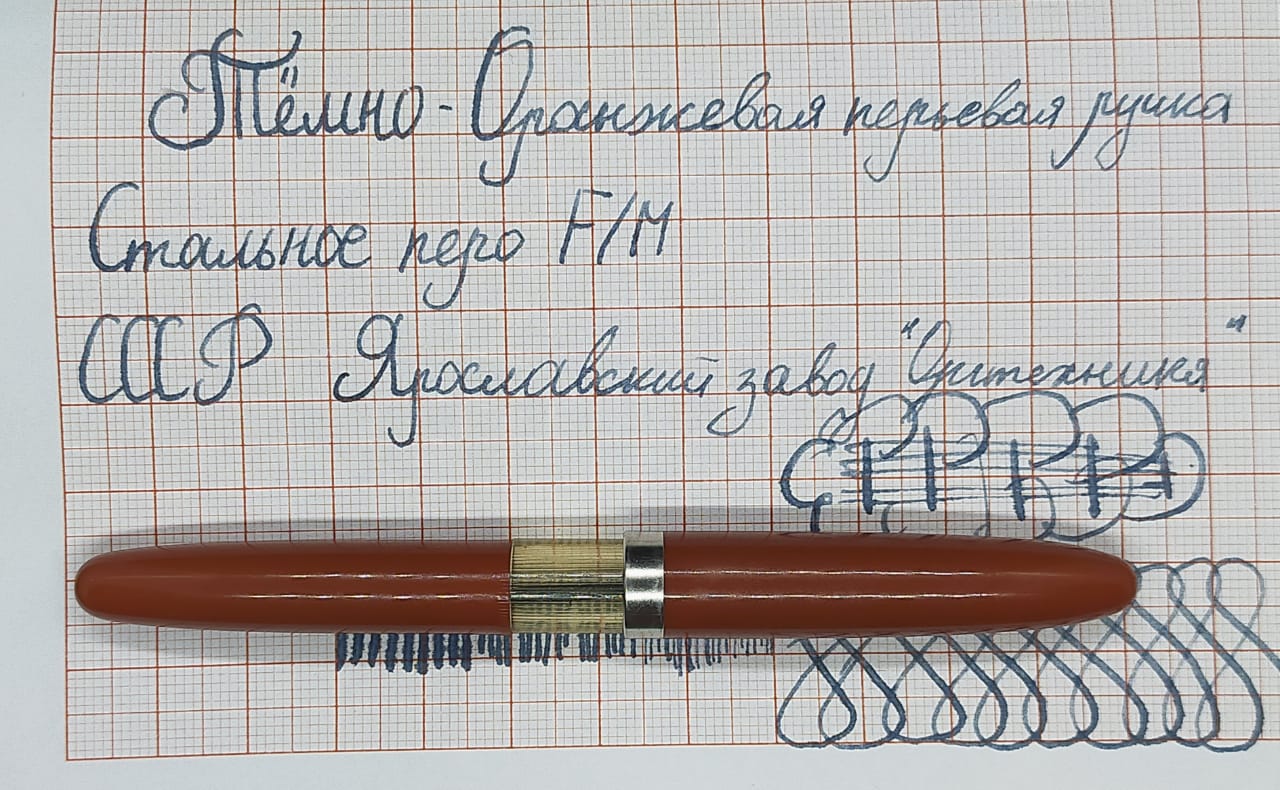 Тёмно-Оранжевая перьевая ручка
Стальное перо F/M
СССР Ярославский завод "Оргтехника"